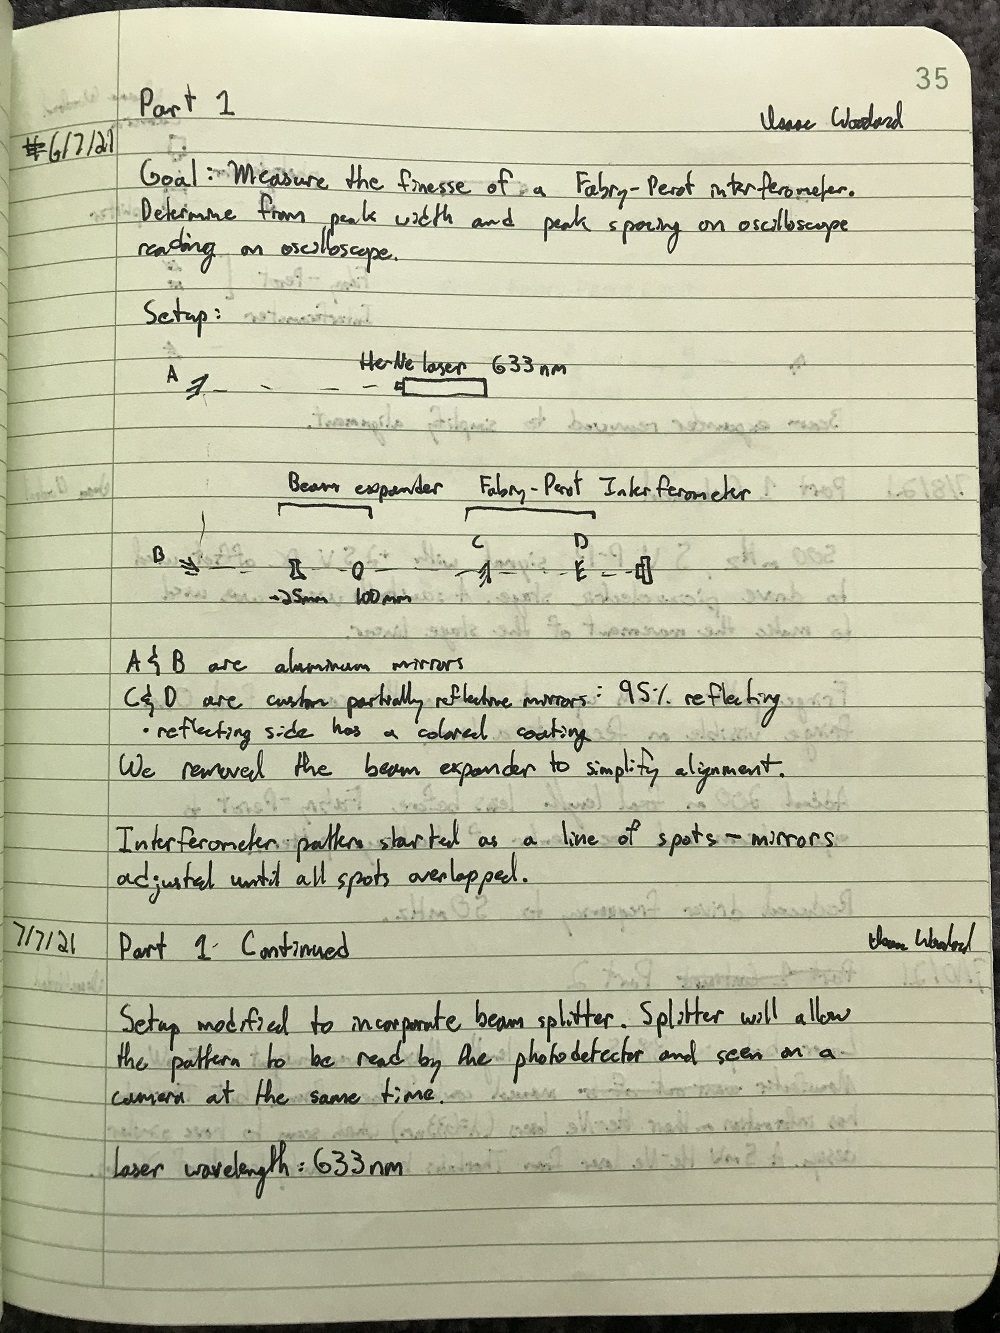 35
Part 1
Isaac Woodard
6/7/21
Goal: Measure the finesse of a Fabry-Perot interferometer.
Determine from peak width and peak spacing on oscilloscope
reading on oscilloscope.
Setup:
HeNe laser 633nm
A
Beam expander Fabry-Perot Interferometer
C D
B
-25mm 100mm
A & B are aluminum mirrors
C & D are custom partially reflective mirrors: 95% reflecting
• reflecting side has a colored coating
We removed the beam expander to simplify alignment.
Interferometer pattern started as a line of spots - mirrors
adjusted until all spots overlapped.
7/7/21 Part 1 Continued Isaac Woodard
Setup modified to incorporate beam splitter. Splitter will allow
the pattern to be read by the photodetector and seen on a
camera at the same time.
Laser wavelength: 633nm